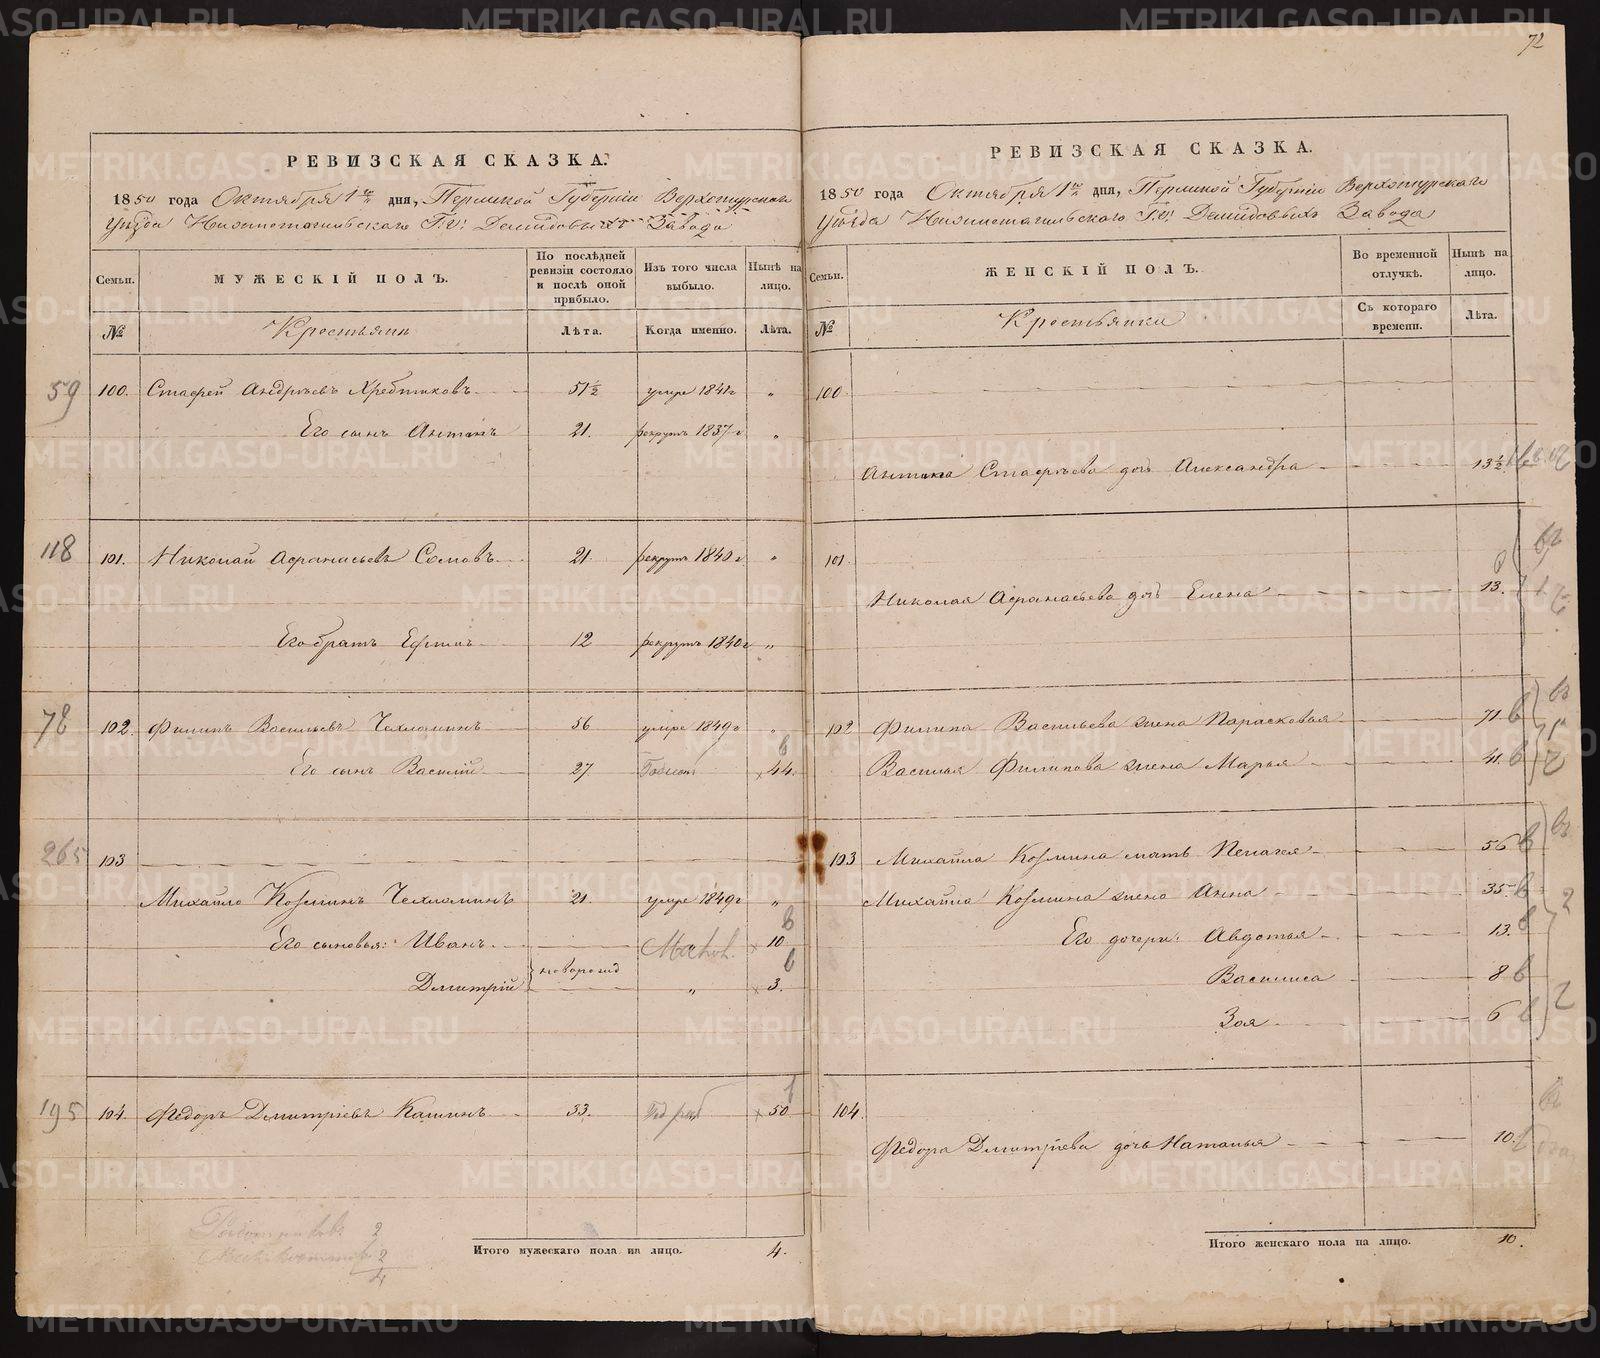 72
РЕВИЗСКАЯ СКАЗКА.
1850 года Октября 1го дня, Пермской Губерніи Верхотурскаго
Уѣзда Нижнетагильскаго Г.г. Демидовыхъ Завода
Семьи. МУЖЕСКІЙ ПОЛЪ. По послѣдней ревизіи состояло и послѣ оной прибыло. Изъ того числа выбыло. Нынѣ на лицо.
№ Крестьяне Лѣта. Когда именно. Лѣта.
59 100. Стафей Андреевъ Хребтиковъ 51½ умре 1841г "
Его сынъ Антонъ 21. рекрутъ 1837 г "
118 101. Николай Афанасьевъ Сомовъ 21. рекрутъ 1840 г "
Его братъ Ефимъ 12 рекрутъ 1840 г "
78 102. Филипъ Васильевъ Чехломинъ 56 умре 1849 г "
Его сынъ Василій 27 44.
265 103
Михайло Козминъ Чехломинъ 21. умре 1849г "
Его сыновья: Иванъ 10
Дмитрій новорожд " 3.
195 104. Федоръ Дмитріевъ Кашинъ 33. 50
2
2
4
Итого мужескаго пола на лицо. 4.
РЕВИЗСКАЯ СКАЗКА.
1850 года Октября 1го дня, Пермской Губерніи Верхотурскаго
Уѣзда Нижнетагильскаго Г.г. Демидовыхъ Завода
Семьи. ЖЕНСКІЙ ПОЛЪ. Во временной отлучкѣ. Нынѣ на лицо.
№ Крестьянки Съ котораго времени. Лѣта.
100
Антона Стафеева дочь Александра 13½
101
Николая Афанасьева дочь Елена 13.
102 Филипа Васильева жена Парасковья 71.
Василья Филипова жена Марья 41.
103 Михайла Козмина мать Пелагея 56
Михайла Козмина жена Анна 35
Его дочери: Авдотья 13.
Василиса 8
Зоя 6
104.
Федора Дмитріева дочь Наталья 10.
Итого женскаго пола на лицо. 10.
METRIKI.GASO-URAL.RU